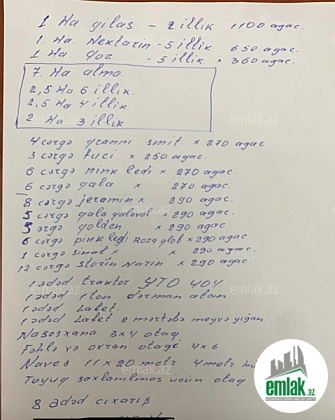 1 Ha gilas - 2 illik 1100 agac.
1 Ha. Nektarin - 5 illik 650 agac.
1 Ha. Qoz - 5 illik • 360 agac.
7. Ha alma.
2,5 Ha 6 illik.
2,5 Ha 4 illik.
2 Ha 3 illik
4 cərgə granni smit. × 270 agac
3 cərgə fuci × 250 agac.
6 cərgə pink ledi × 270 agac.
6 cərgə gala × 270 agac.
8 cərgə × 290 agac.
5 cərgə gala × 290 agac.
5 cərgə golden × 290 agac.
6 cərgə pink ledi × 290 agac.
1 cərgə × 290 agac.
12 cərgə × 290 agac.
1 ədəd traktor YTO 404.
1 ədəd 1 ton dərman atan
1 ədəd Lafet.
1 ədəd Lafet 2 mərtəbə meyvə yığan.
Nasosxana 3×4 otaq
Fəhlə və otağı 4×6
Naves 11×20 metr 4 metr
Toyuq saxlanılması üçün otaq
8 ədəd
emlak.az
emlak.az
emlak.az
emlak.az